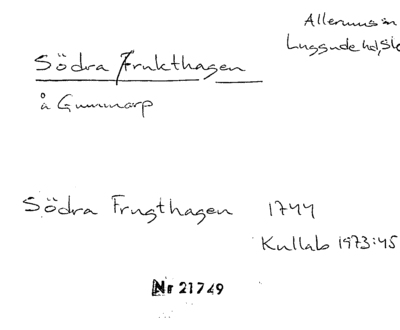 Allerums sn
Luggude hd, Sk
Södra Frukthagen
å Gunnarp
Södra Frugthagen 1744
Kullab 1973:45
Nr 21749